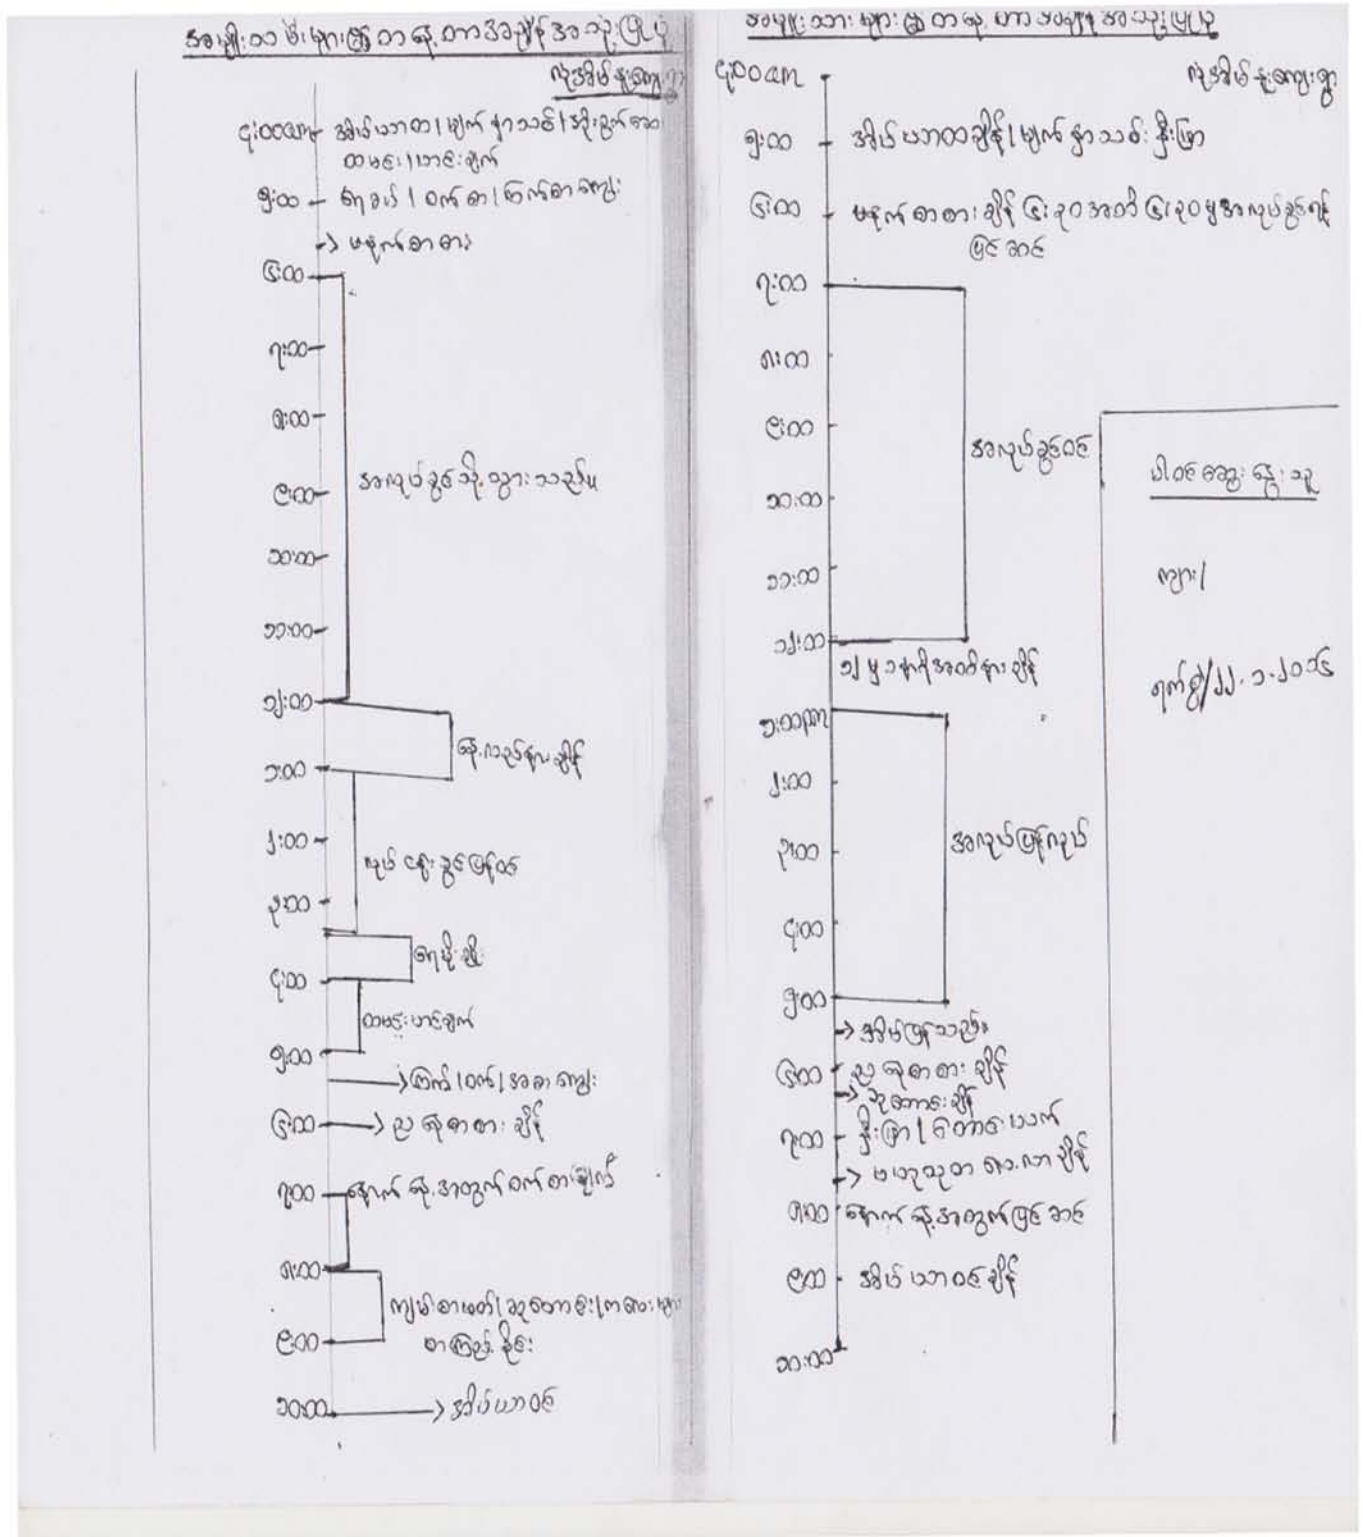 အမျိုးသမီးများ၏ တနေ့တာအချိန်အသုံးပြုပုံ
၄:၀၀am အိပ်ယာထ၊ မျက်နှာသစ်၊
ထမင်း၊ ဟင်းချက်
၅:၀၀ ရေခပ်၊ ဝက်စာ၊ ကြက်စာကျွေး
→ မနက်စာစား
၆:၀၀
၇:၀၀
၈:၀၀
အလုပ်ခွင်သို့ သွားသည်။
၉:၀၀
၁၀:၀၀
၁၁:၀၀
၁၂:၀၀
နေ့လည်နားချိန်
၁:၀၀
၂:၀၀
လုပ်ငန်းခွင်ပြန်ဝင်
၃:၀၀
ရေမိုးချိုး
၄:၀၀
ထမင်းဟင်းချက်
၅:၀၀
→ ကြက်၊ ဝက်၊ အစာကျွေး
၆:၀၀ → ညနေစာစားချိန်
၇:၀၀ နောက်နေ့အတွက် ဝက်စာချက်
၈:၀၀
ကျမ်းစာဖတ်၊ ဆုတောင်း၊ ကလေးများ
၉:၀၀ စာကြည့်ခိုင်း
၁၀:၀၀ → အိပ်ယာဝင်
အမျိုးသားများ၏ တနေ့တာအချိန်အသုံးပြုပုံ
၄:၀၀am
၅:၀၀ အိပ်ယာထချိန်၊ မျက်နှာသစ်၊ နှီးဖြာ
၆:၀၀ မနက်စာစားချိန် ၆:၃၀အထိ ၆:၃၀မှအလုပ်ခွင်ရန်
ပြင်ဆင်
၇:၀၀
၈:၀၀
၉:၀၀
အလုပ်ခွင်ဝင်
၁၀:၀၀
၁၁:၀၀
၁၂:၀၀
၁၂ မှ ၁နာရီအထိနားချိန်
၁:၀၀pm
၂:၀၀
အလုပ်ပြန်လုပ်
၃:၀၀
၄:၀၀
၅:၀၀
→ အိမ်ပြန်သည်။
၆:၀၀ ညနေစာစားချိန်
→ ဆုတောင်းချိန်
၇:၀၀ နှီးဖြာ၊ တောင်းယက်
→ ဗဟုသုတ လေ့လာချိန်
၈:၀၀ နောက်နေ့အတွက်ပြင်ဆင်
၉:၀၀ အိပ်ယာဝင်ချိန်
၁၀:၀၀
ပါဝင်ဆွေးနွေးသူ
ကျား/
ရက်စွဲ/၂၂.၁.၂၀၁၆